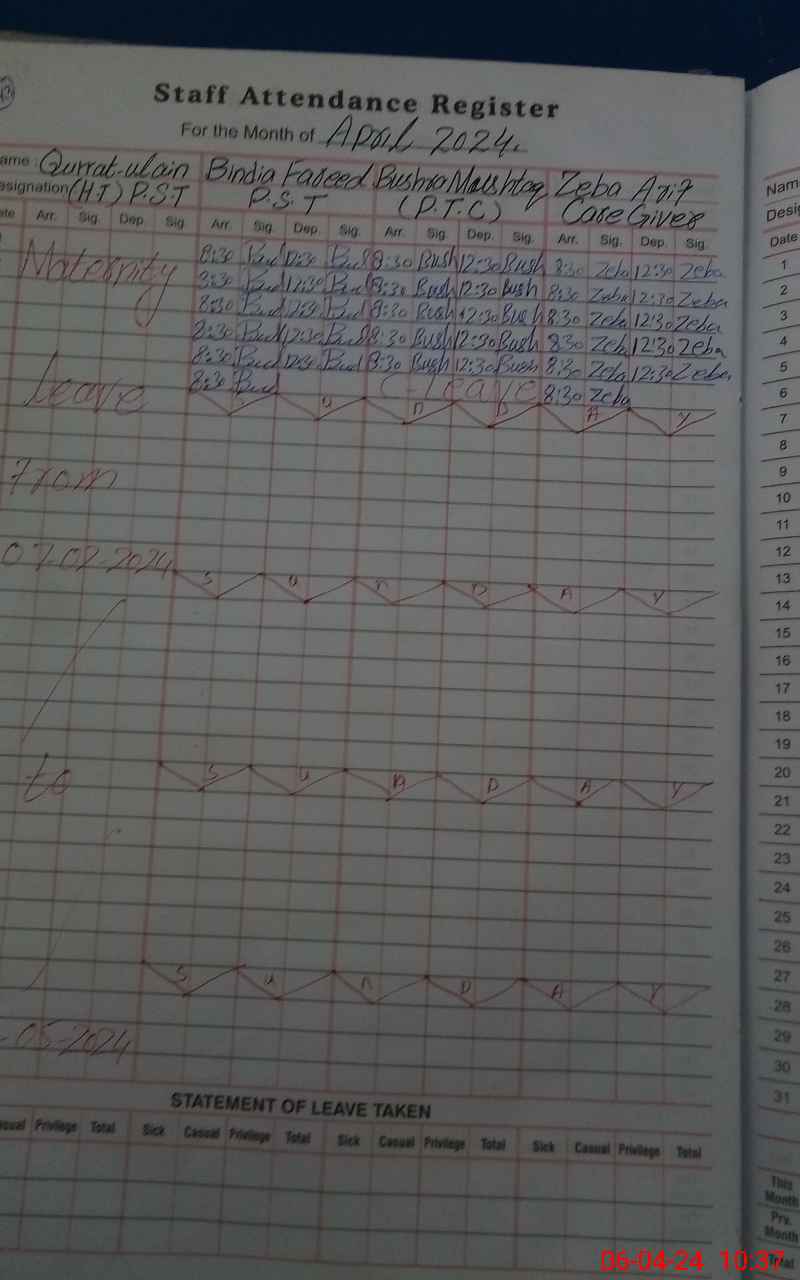 Staff Attendance Register
For the Month of April 2024.
ame : Qurrat-ulain Bindia Fareed Bushra Mushtaq Zeba Arif
esignation (H.T) P.S.T P.S.T (P.T.C) Care Giver
ate Arr. Sig. Dep. Sig. Arr. Sig. Dep. Sig. Arr. Sig. Dep. Sig. Arr. Sig. Dep. Sig.
Maternity
8:30 12:30 8:30 Bush 12:30 Bush 8:30 Zeba 12:30 Zeba
8:30 12:30 8:30 Bush 12:30 Bush 8:30 Zeba 12:30 Zeba
8:30 12:30 8:30 Bush 12:30 Bush 8:30 Zeba 12:30 Zeba
8:30 12:30 8:30 Bush 12:30 Bush 8:30 Zeba 12:30 Zeba
8:30 12:30 8:30 Bush 12:30 Bush 8:30 Zeba 12:30 Zeba
Leave 8:30 C-leave 8:30 Zeba
U N D A Y
From
07-02-2024
S U N D A Y
to
S U N D A Y
S U N D A Y
-05-2024
STATEMENT OF LEAVE TAKEN
asual Privilege Total Sick Casual Privilege Total Sick Casual Privilege Total Sick Casual Privilege Total
Nam
Desig
Date
1
2
3
4
5
6
7
8
9
10
11
12
13
14
15
16
17
18
19
20
21
22
23
24
25
26
27
28
29
30
31
This
Month
Prv.
Month
Total
06-04-24 10:37